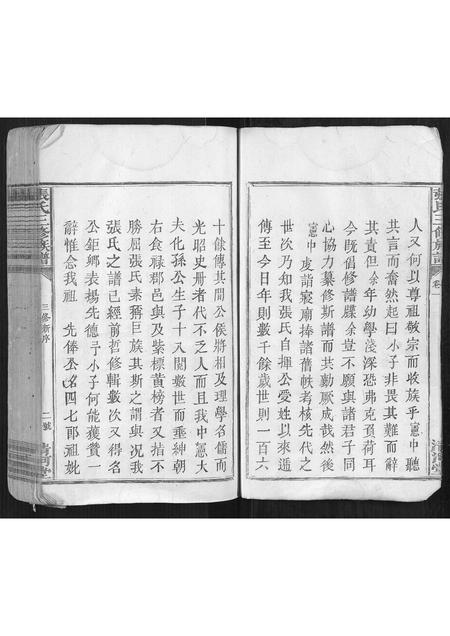 張氏三修族譜
卷一
清河堂
人又何以尊祖敬宗而收族乎憲中聽
其言而奮然起曰小子非畏其難而辭
其責但余年幼學淺深恐弗克負荷耳
今既倡修譜牒余豈不願與諸君子同
心協力纂修斯譜而共勷厥成哉然後
憲中虔詣寢廟捧諸舊帙考核先代之
世次乃知我張氏自揮公受姓以來遞
傳至今日年則數千餘歲世則一百六
十餘傳其間公侯將相及理學名儒而
光昭史册者代不乏人而且我中憲大
夫化孫公生子十又閱數世而垂紳朝
右食祿郡邑與及紫標黃榜者又拮不
勝屈張氏素稱巨族其斯之謂與況我
張氏之譜已經前哲修輯數次又得名
公鉅鄉表楊先德予小子何能獲贊一
辭惟念我祖 先俸公名四七郎祖妣
張氏三修族譜
三修新序
二號
清河堂